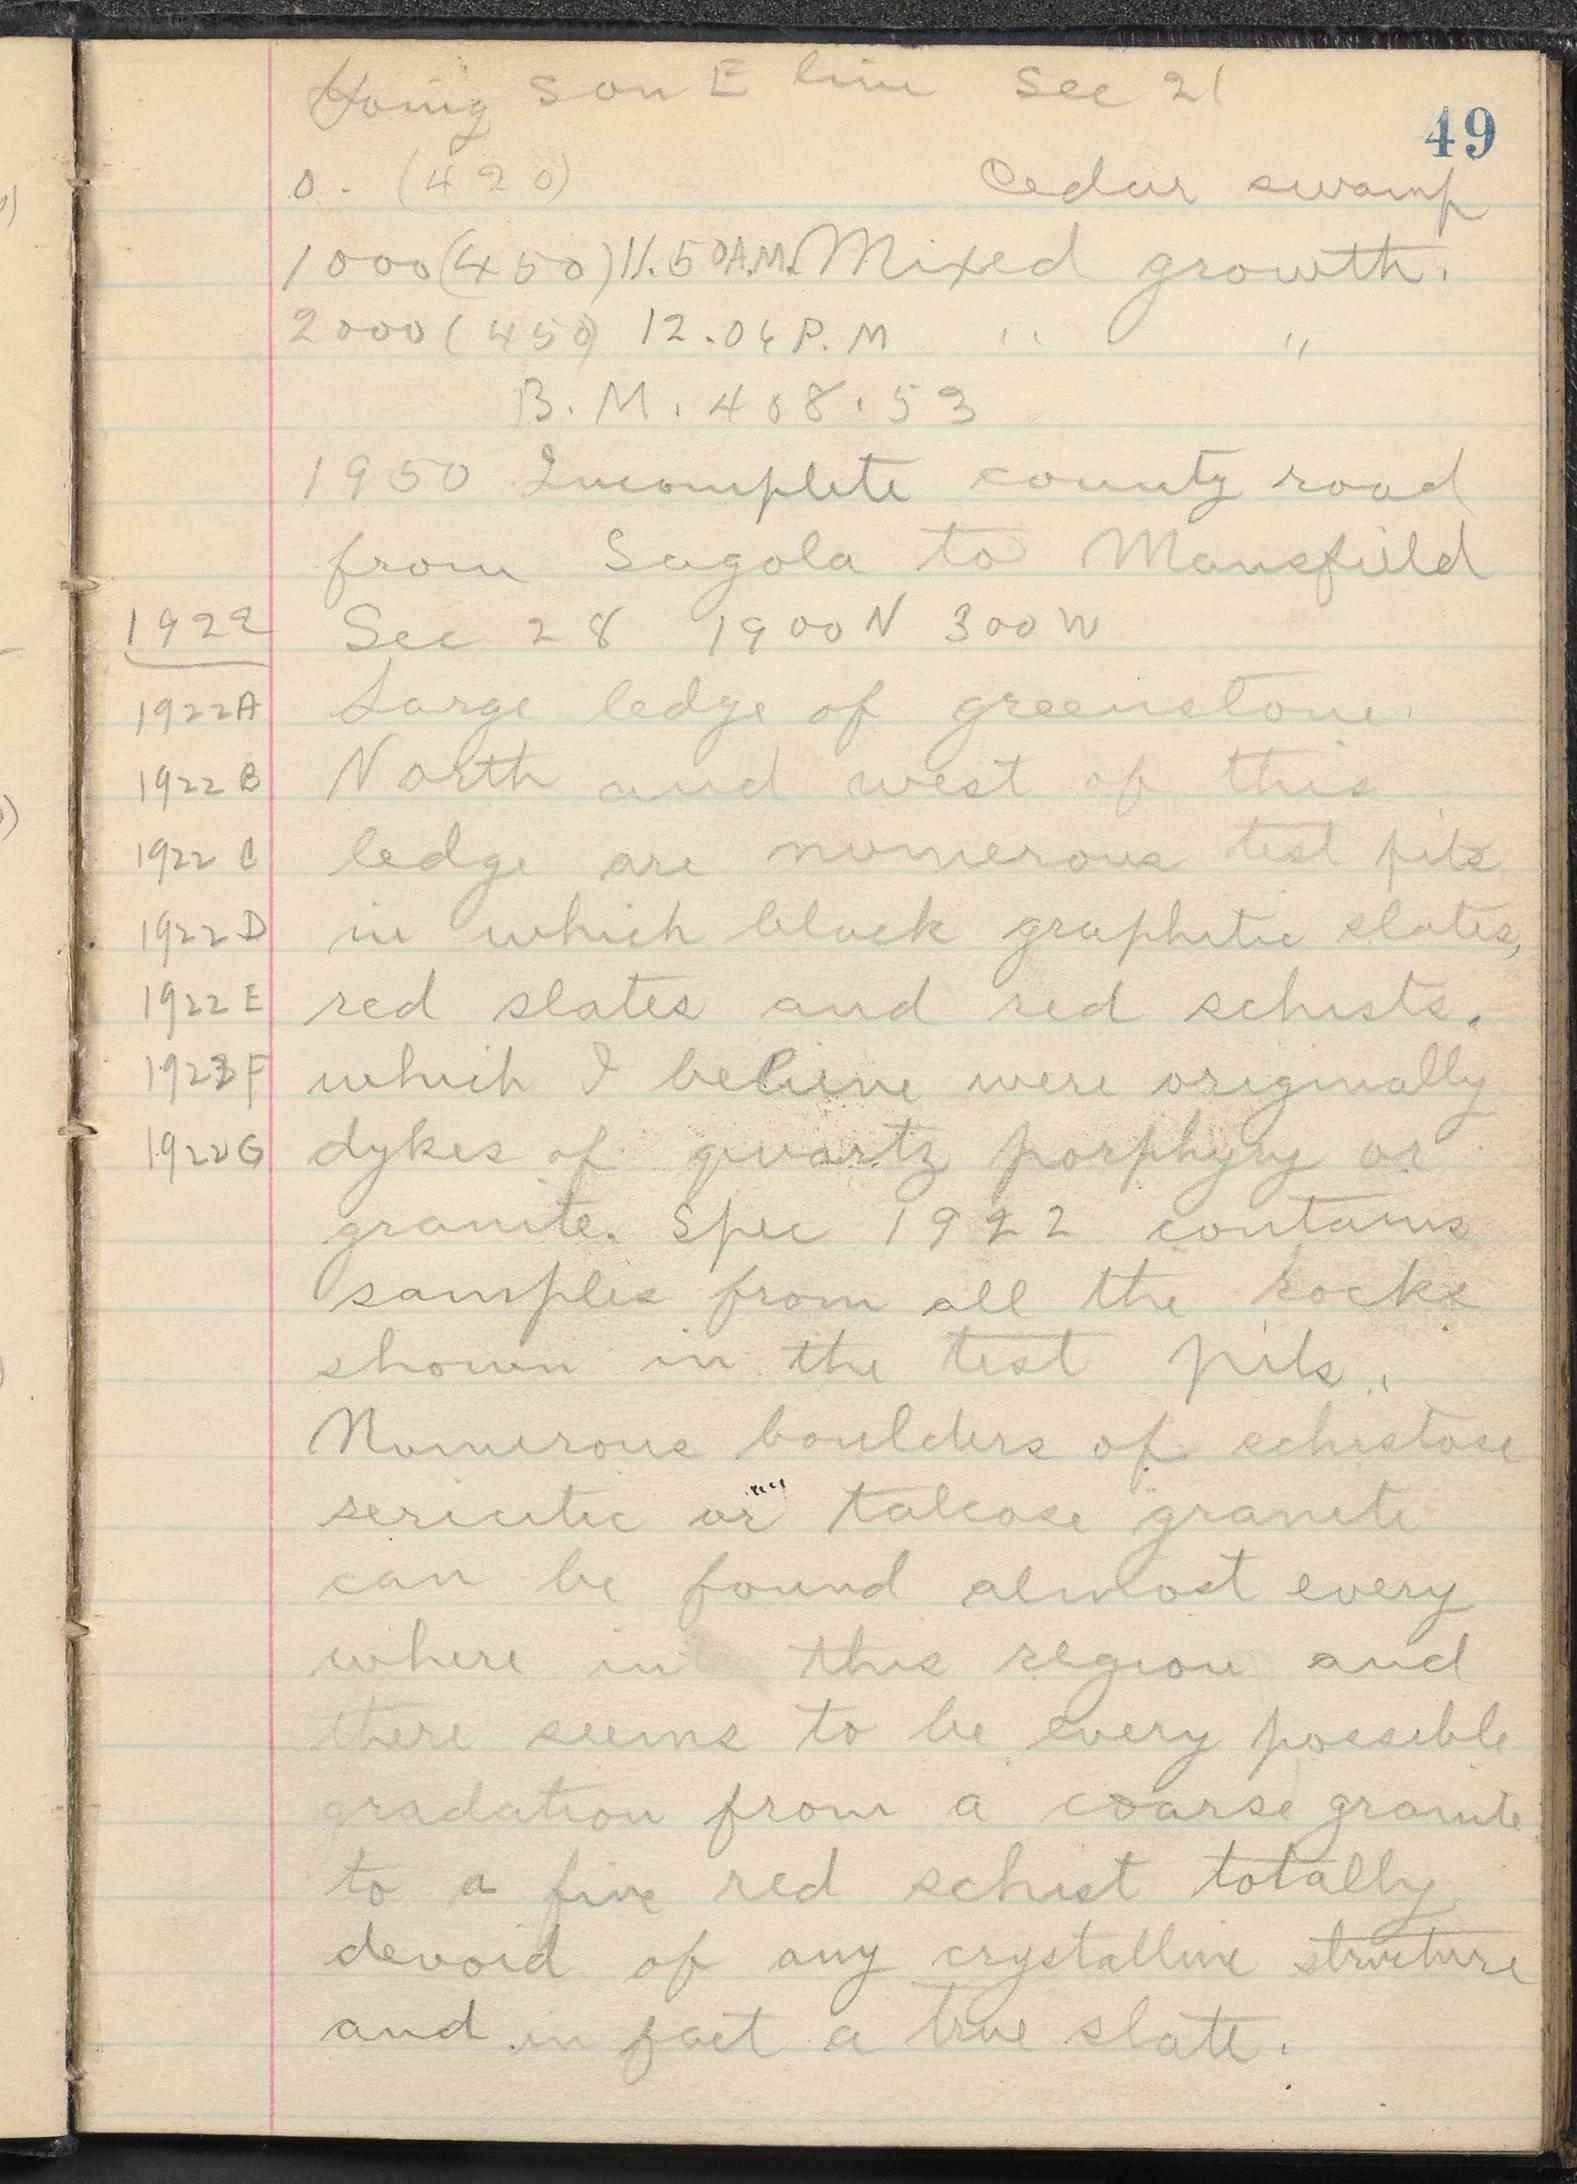 Going S on E line Sec 21
49
0. (420) Cedar swamp
1000 (450) 11.50 A.M. Mixed growth.
2000 (450) 12.06 P.M " "
B.M. 408.53
1950 Incomplete county road
from Sagola to Mansfield
1922 Sec 28 1900 N 300 W
1922A Large ledge of greenstone.
1922 B North and west of this
1922 C ledge are numerous test pits
1922 D in which black graphitic slates,
1922 E red slates and red schists.
1922 F which I believe were originally
1922 G dykes of quartz porphyry or
granite. Spec 1922 contains
samples from all the rocks
shown in the test pits.
Numerous boulders of schistose
sericitic or talcose granite
can be found almost every
where in this region and
there seems to be every possible
gradation from a coarse granite
to a fine red schist totally
devoid of any crystalline structure
and in fact a true slate.